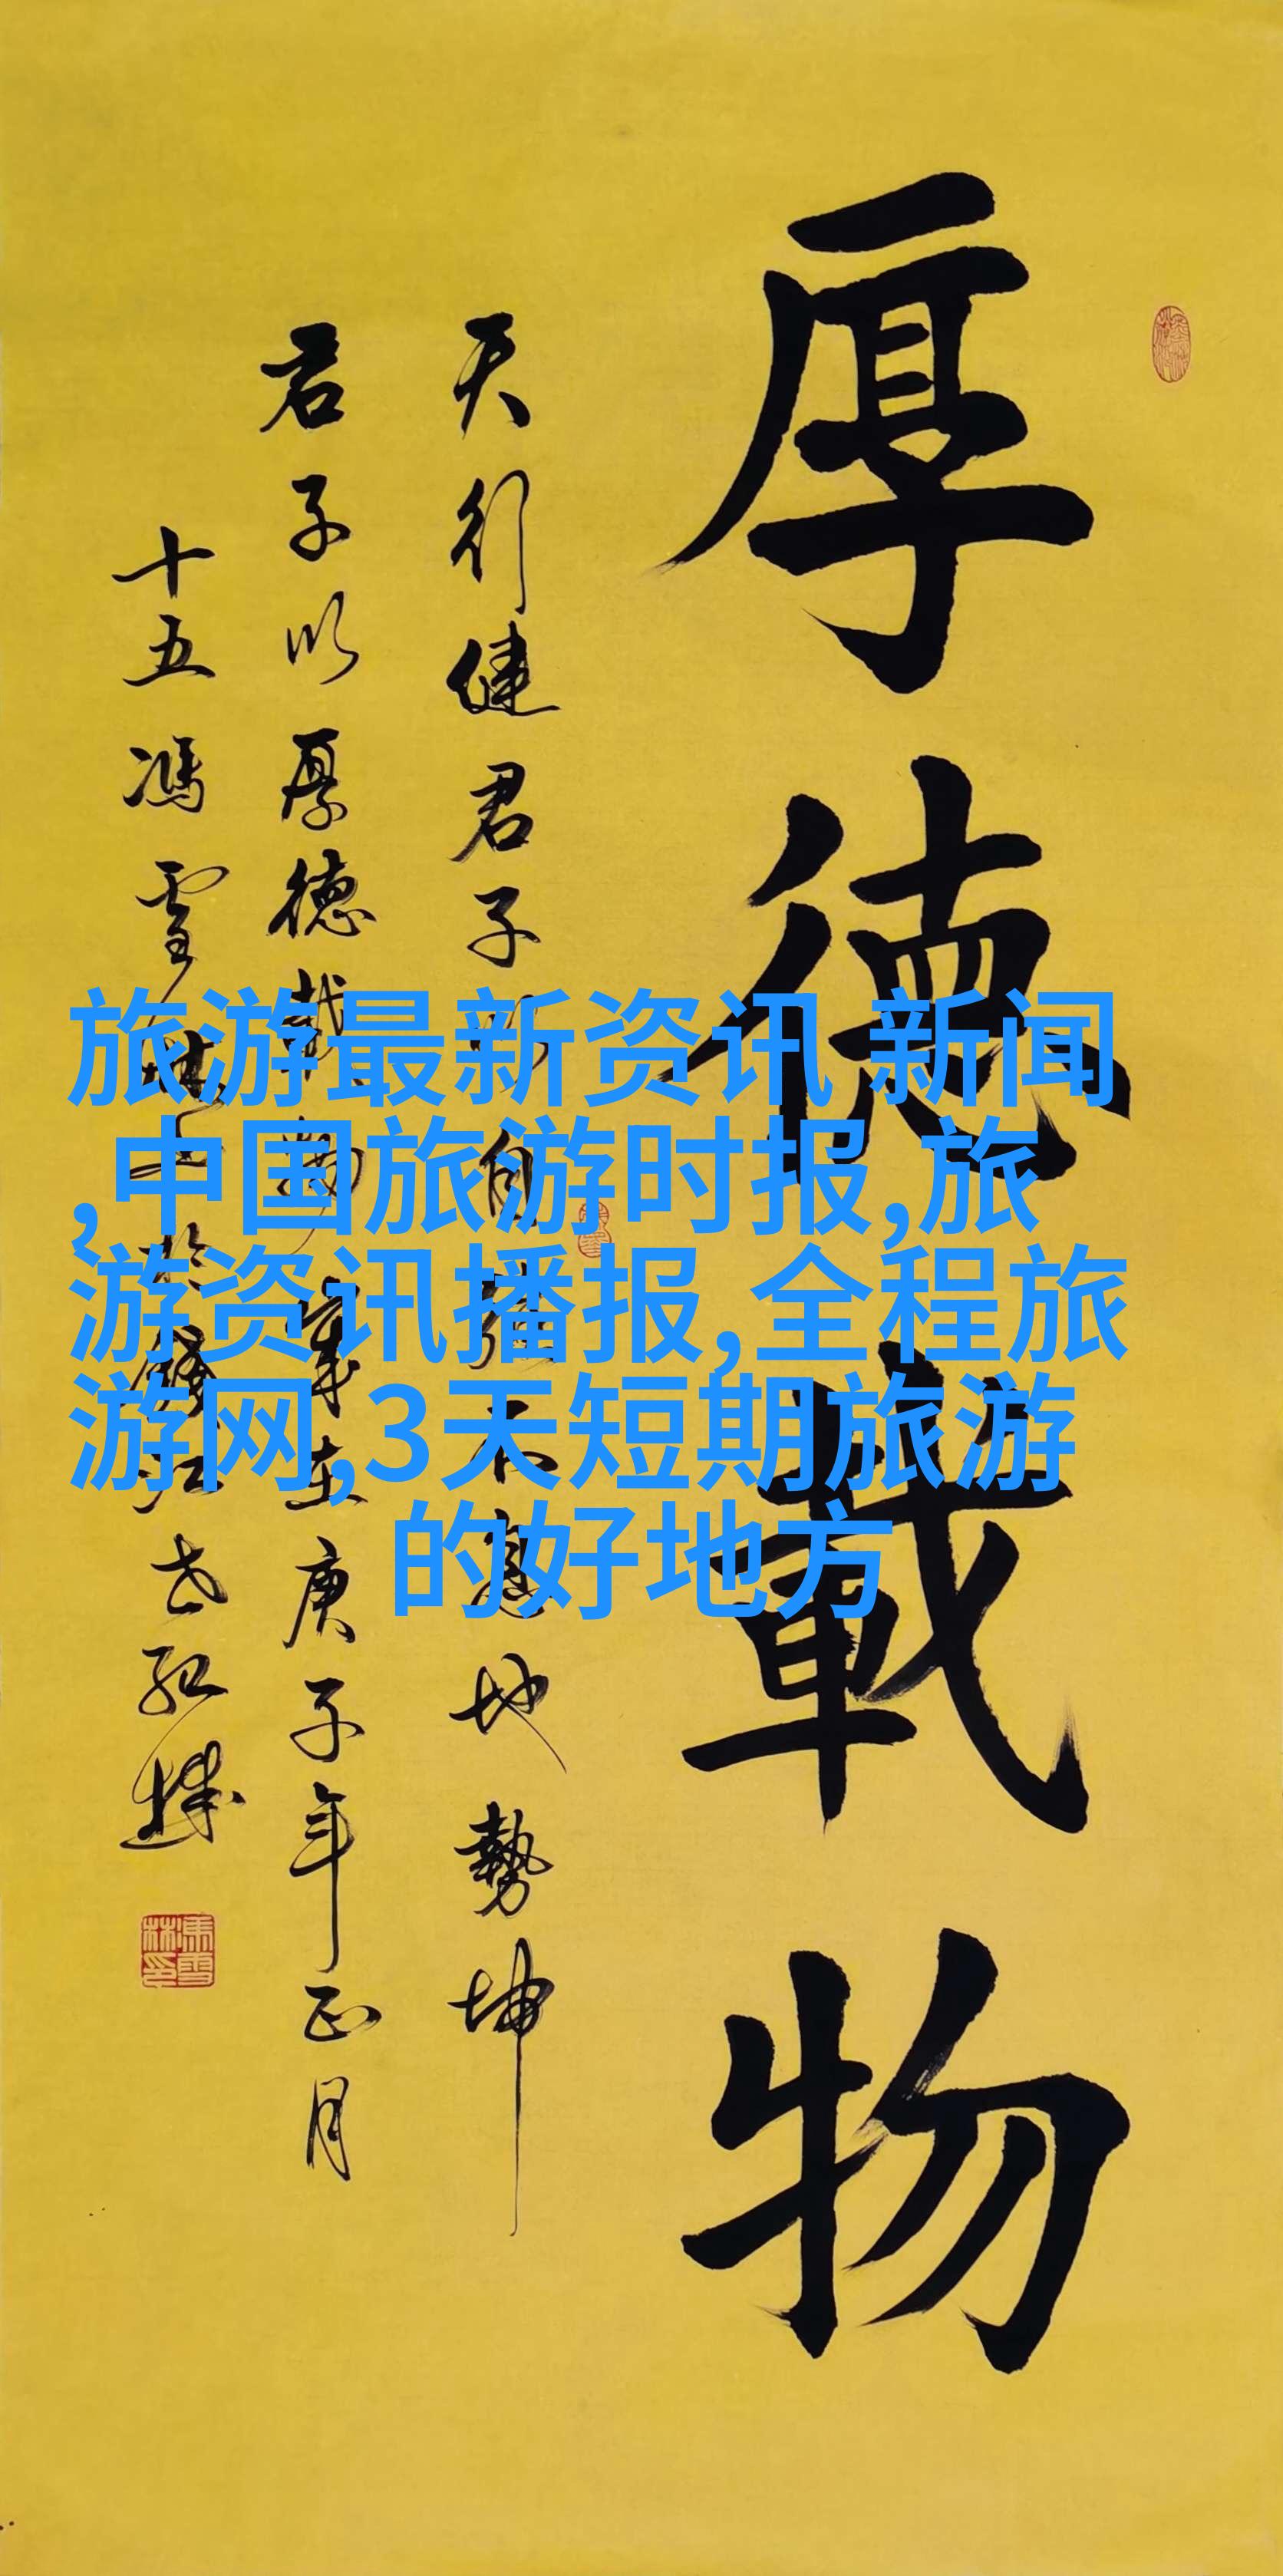 厚德載物
天行健君子以自强不息地勢坤
君子以厚德載物 歲在庚子年正月
十五馮雪林書於錢江
旅游最新资讯 新闻
,中国旅游时报,旅
游资讯播报,全程旅
游网,3天短期旅游
的好地方